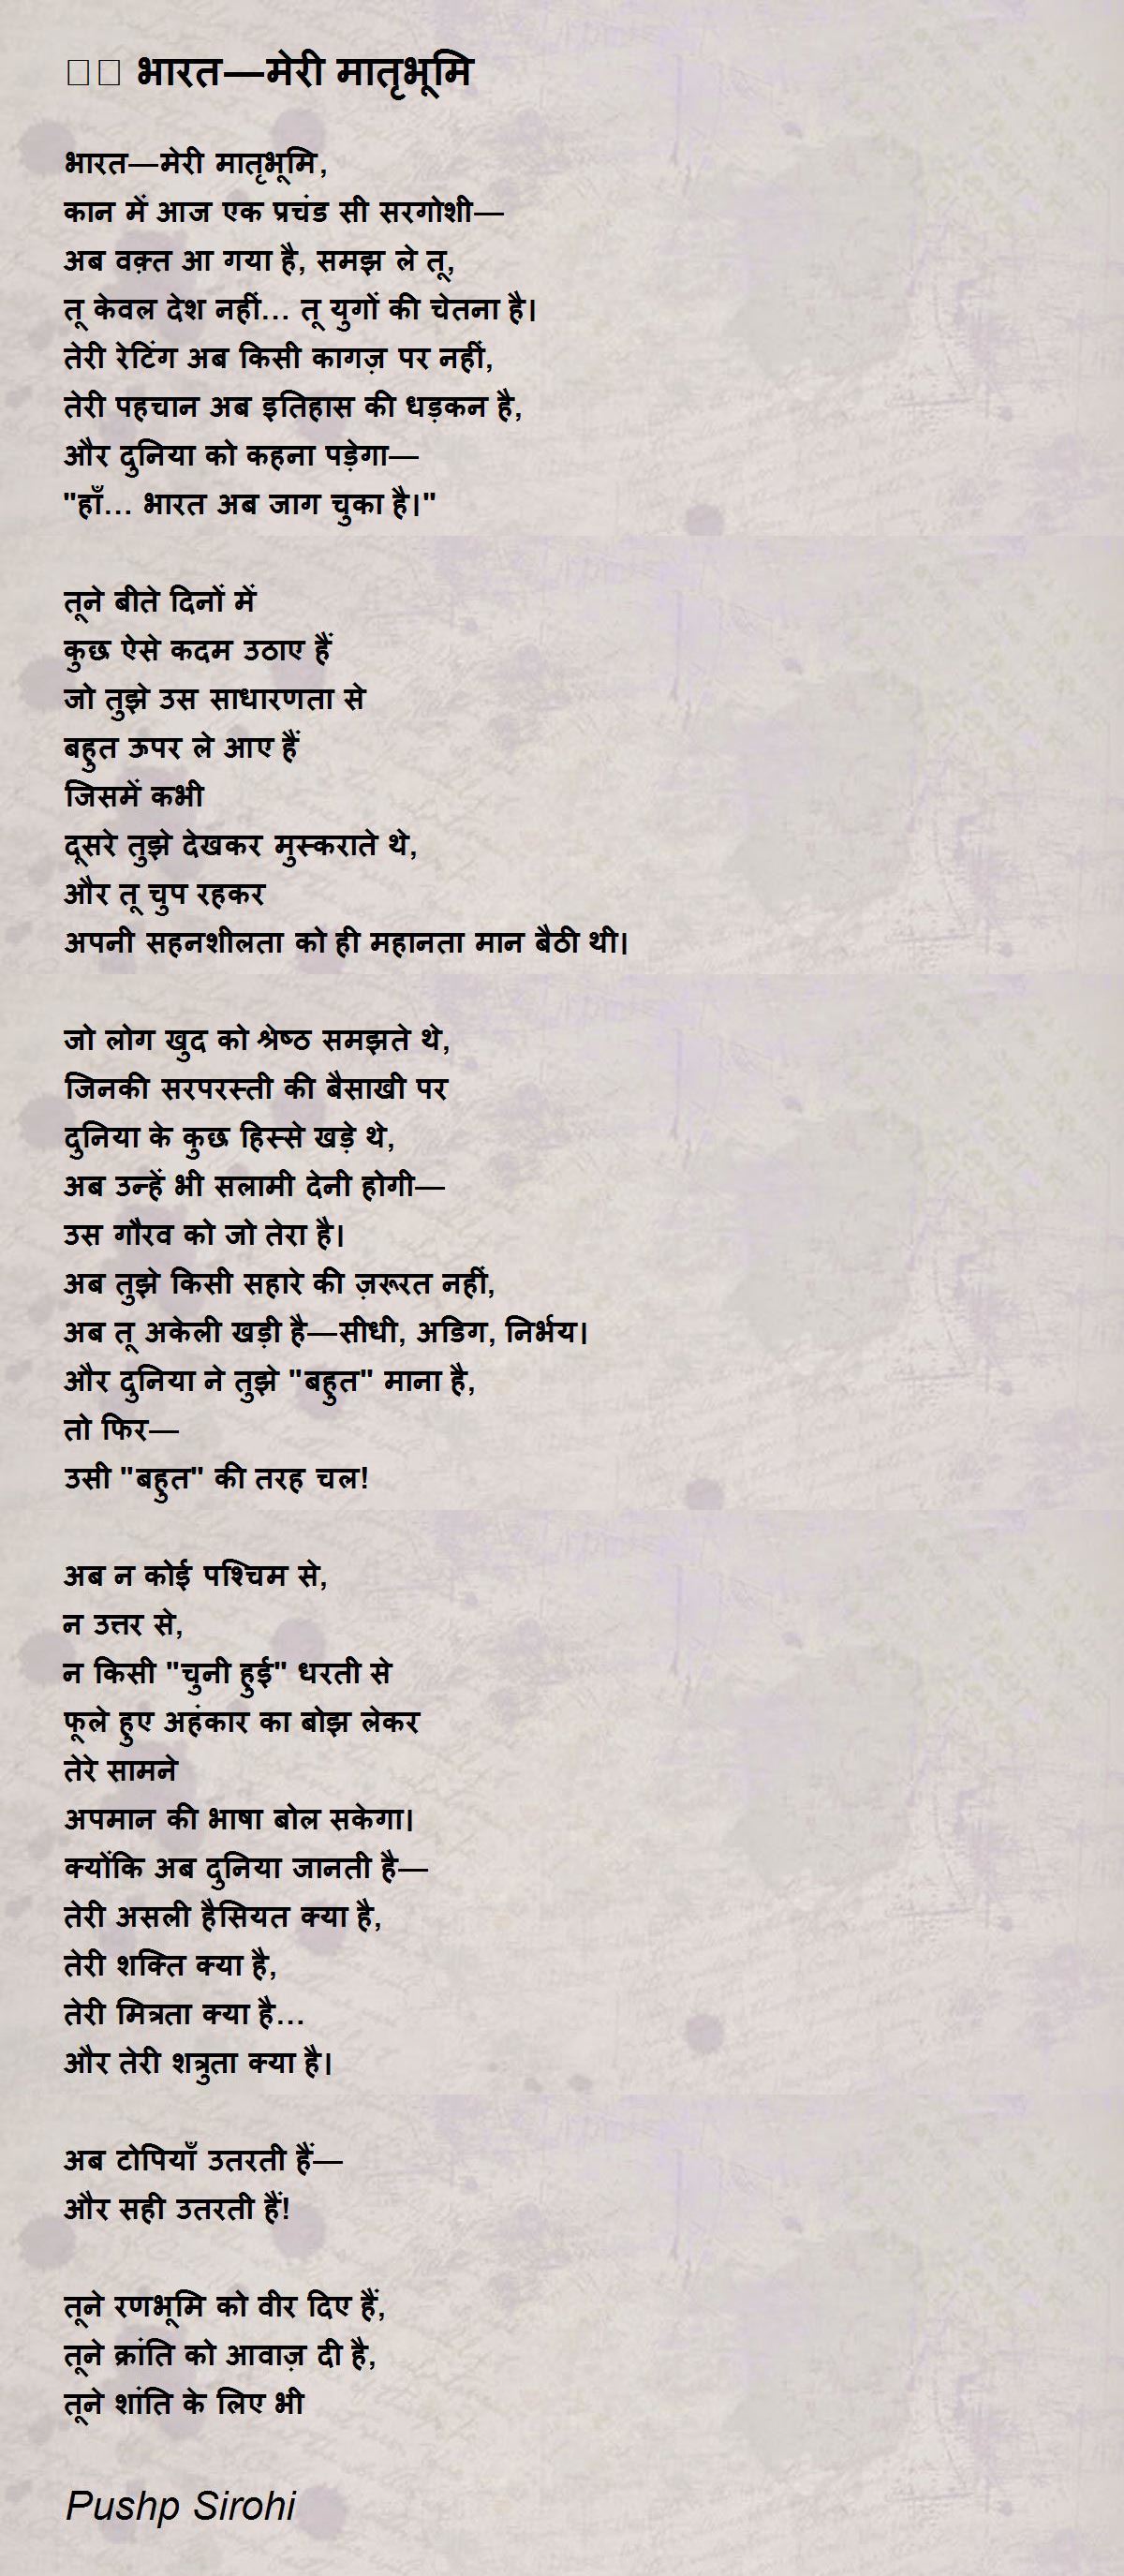 भारत—मेरी मातृभूमि
भारत—मेरी मातृभूमि,
कान में आज एक प्रचंड सी सरगोशी—
अब वक़्त आ गया है, समझ ले तू,
तू केवल देश नहीं... तू युगों की चेतना है।
तेरी रेटिंग अब किसी कागज़ पर नहीं,
तेरी पहचान अब इतिहास की धड़कन है,
और दुनिया को कहना पड़ेगा—
"हाँ... भारत अब जाग चुका है।"
तूने बीते दिनों में
कुछ ऐसे कदम उठाए हैं
जो तुझे उस साधारणता से
बहुत ऊपर ले आए हैं
जिसमें कभी
दूसरे तुझे देखकर मुस्कराते थे,
और तू चुप रहकर
अपनी सहनशीलता को ही महानता मान बैठी थी।
जो लोग खुद को श्रेष्ठ समझते थे,
जिनकी सरपरस्ती की बैसाखी पर
दुनिया के कुछ हिस्से खड़े थे,
अब उन्हें भी सलामी देनी होगी—
उस गौरव को जो तेरा है।
अब तुझे किसी सहारे की ज़रूरत नहीं,
अब तू अकेली खड़ी है—सीधी, अडिग, निर्भय।
और दुनिया ने तुझे "बहुत" माना है,
तो फिर—
उसी "बहुत" की तरह चल!
अब न कोई पश्चिम से,
न उत्तर से,
न किसी "चुनी हुई" धरती से
फूले हुए अहंकार का बोझ लेकर
तेरे सामने
अपमान की भाषा बोल सकेगा।
क्योंकि अब दुनिया जानती है—
तेरी असली हैसियत क्या है,
तेरी शक्ति क्या है,
तेरी मित्रता क्या है...
और तेरी शत्रुता क्या है।
अब टोपियाँ उतरती हैं—
और सही उतरती हैं!
तूने रणभूमि को वीर दिए हैं,
तूने क्रांति को आवाज़ दी है,
तूने शांति के लिए भी
Pushp Sirohi